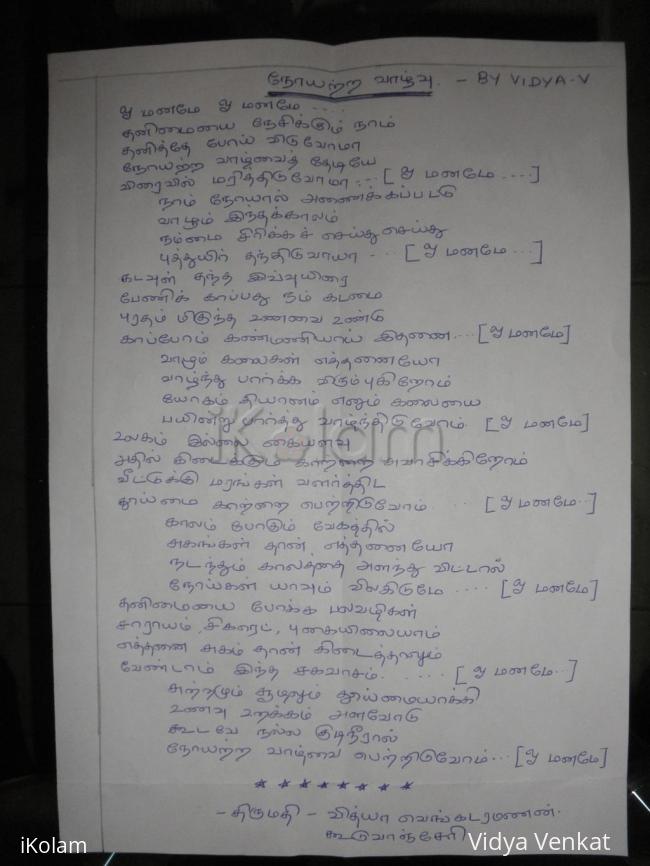 நோயற்ற வாழ்வு. - BY VIDYA-V
ஓ மனமே ஓ மனமே ....
தனிமையை நேசிக்கும் நாம்
தனித்தே போய் விடுவோமா
நோயற்ற வாழ்வைத் தேடியே
விரைவில் மரித்திடுவோமா ... [ ஓ மனமே .... ]
நாம் நோயால் அணைக்கப்பட்டு
வாழும் இந்தக்காலம்
நம்மை சிரிக்கச் செய்து செய்து
புத்துயிர் தந்திடுவாயா - ... [ ஓ மனமே ... ]
கடவுள் தந்த இவ்வுயிரை
பேணிக் காப்பது நம் கடமை
புரதம் மிகுந்த உணவை உண்டு
காப்போம் கண்மணியாய் இதனை ... [ ஓ மனமே ]
வாழும் கலைகள் எத்தனையோ
வாழ்ந்து பார்க்க விரும்புகிறோம்
யோகம் தியானம் எனும் கலையை
பயின்று பார்த்து வாழ்ந்திடுவோம். [ ஓ மனமே .. ]
உலகம் இல்லை கையளவு
அதில் கிடைக்கும் காற்றை சுவாசிக்கிறோம்
வீட்டுக்கு மரங்கள் வளர்த்திட
தூய்மை காற்றை பெற்றிடுவோம். [ ஓ மனமே ... ]
காலம் போகும் வேகத்தில்
சுகங்கள் தான் எத்தனையோ
நடந்தும் காலத்தை அளந்து விட்டால்
நோய்கள் யாவும் விலகிடுமே .... [ ஓ மனமே ... ]
தனிமையை போக்க பலவழிகள்
சாராயம், சிகரெட், புகையிலையாம்
எத்தனை சுகம் தான் கிடைத்தாலும்
வேண்டாம் இந்த சகவாசம். .... [ ஓ மனமே .. ]
சுற்றமும் சூழலும் தூய்மையாக்கி
உணவு உறக்கம் அளவோடு
கூடவே நல்ல குடிநீரால்
நோயற்ற வாழ்வை பெற்றிடுவோம் ... [ ஓ மனமே ... ]
- திருமதி - வித்யா வெங்கடரமணன்.
கூடுவாஞ்சேரி
iKolam
iKolam
Vidya Venkat